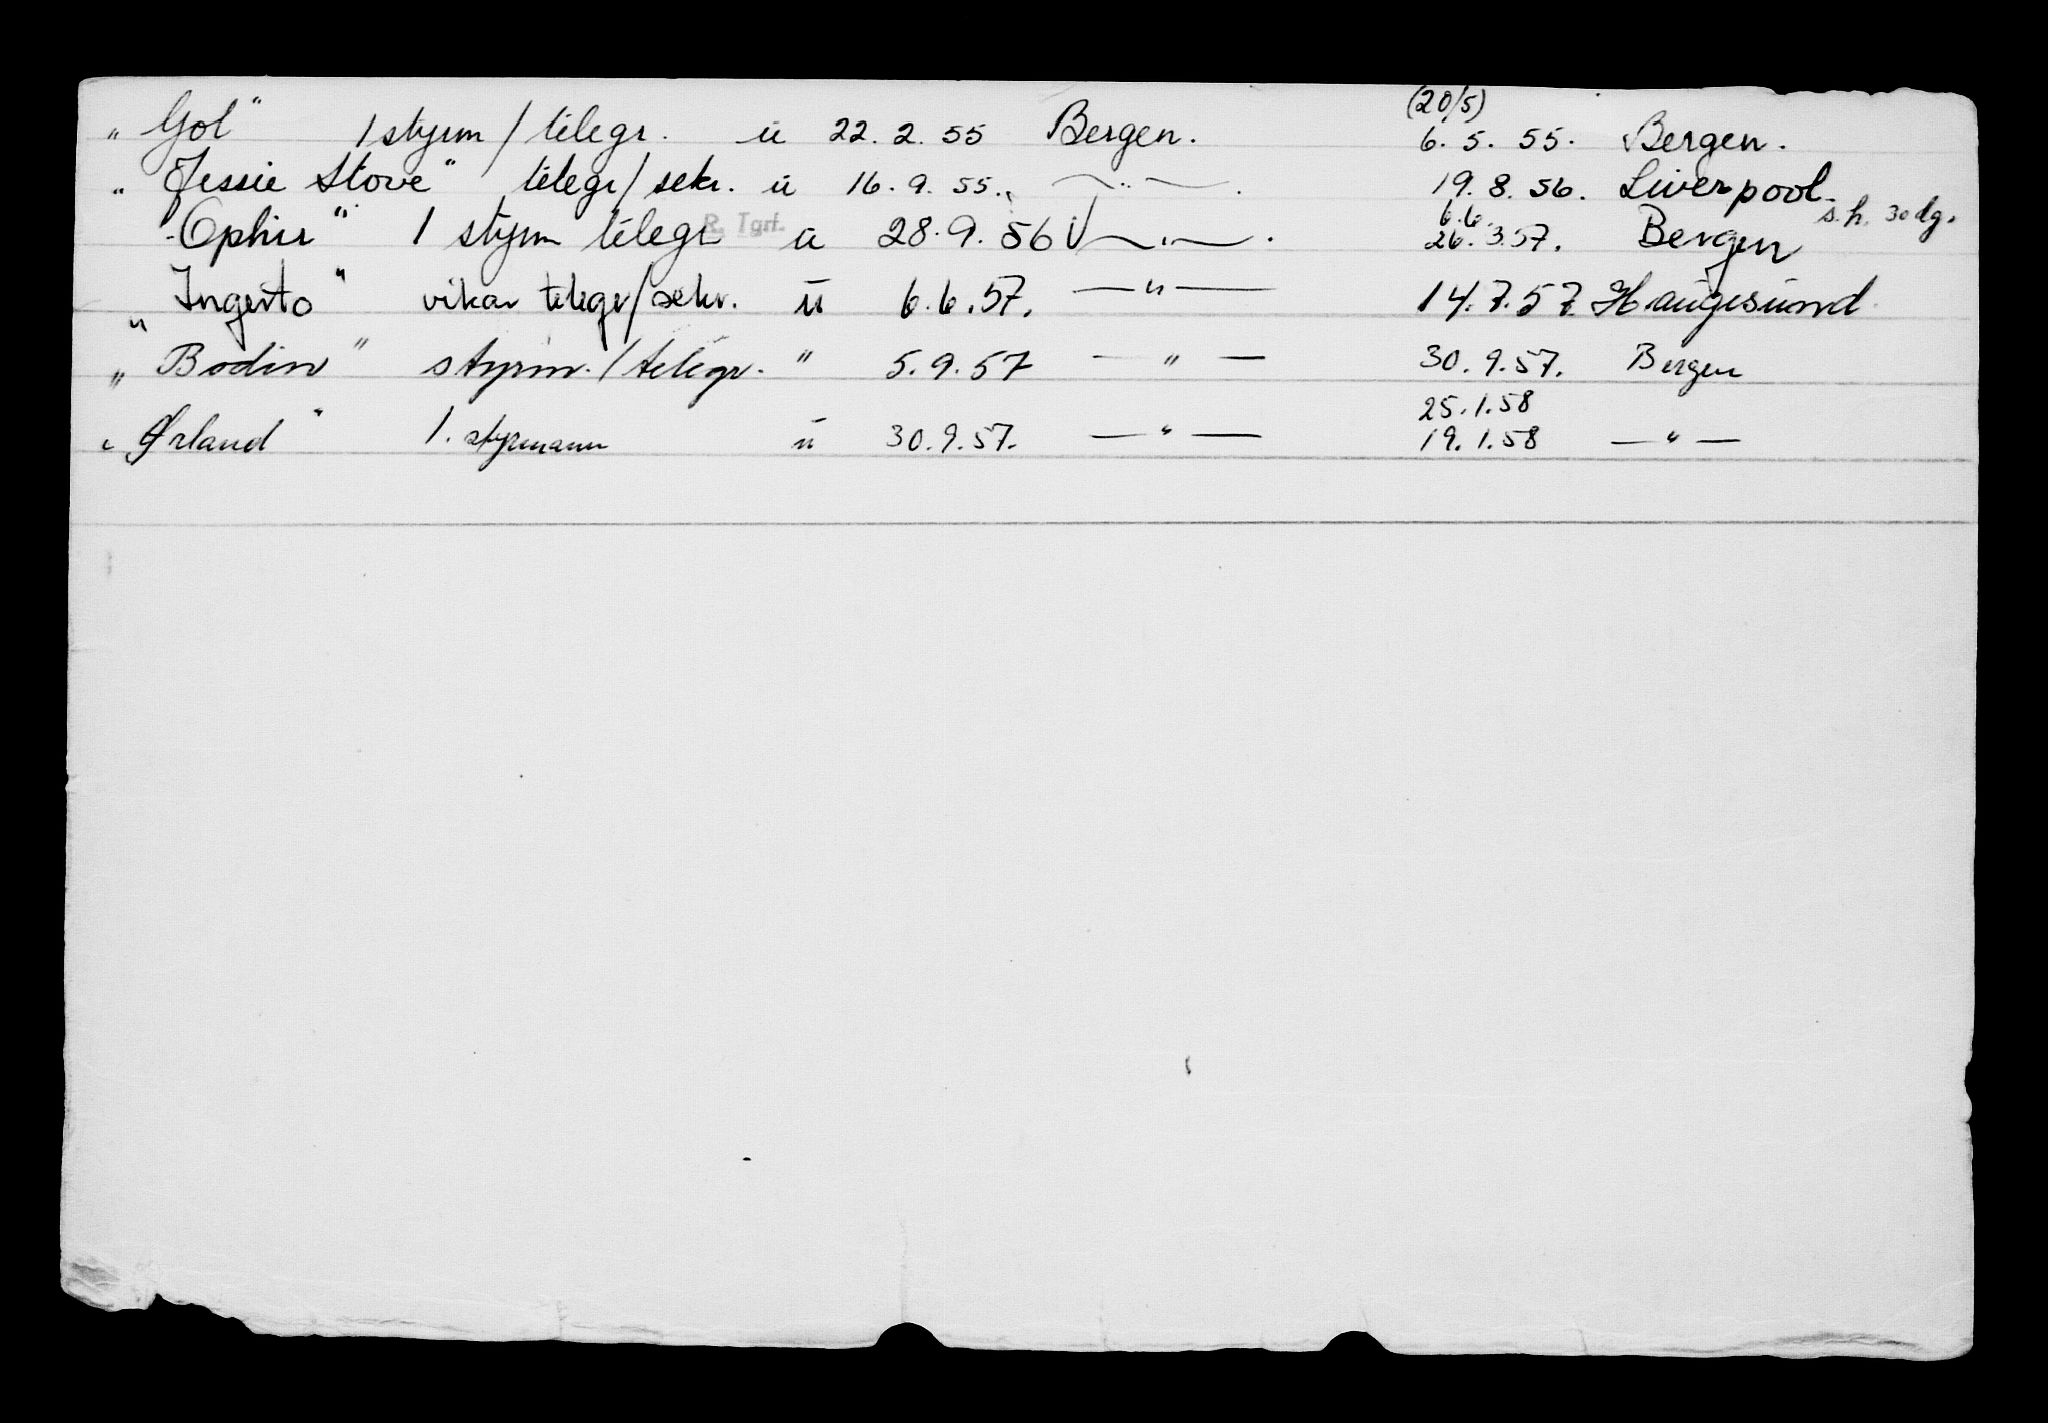 „ Gol" 1 styrm / telegr. u 22. 2. 55 Bergen. (20/5) 6. 5. 55. Bergen.
„ Jessie Stove" telegr/sekr. u 16. 9. 55. — " — . 19. 8. 56. Liverpool.
Ophir" 1 styrm telegr R. Tgrf. u 28. 9. 56 — " — . 6.6. 26. 3.57. Bergen s.h. 30 dg.
„ Ingerto" vikar telegr/sekr. u 6. 6. 57. — " — 14. 7. 57 Haugesund
„ Bodin" styrm. / telegr. " 5. 9. 57 — " — 30. 9. 57. Bergen
25. 1. 58
„ Ørland" 1. styrmann u 30. 9. 57. — " — 19. 1. 58 — " —